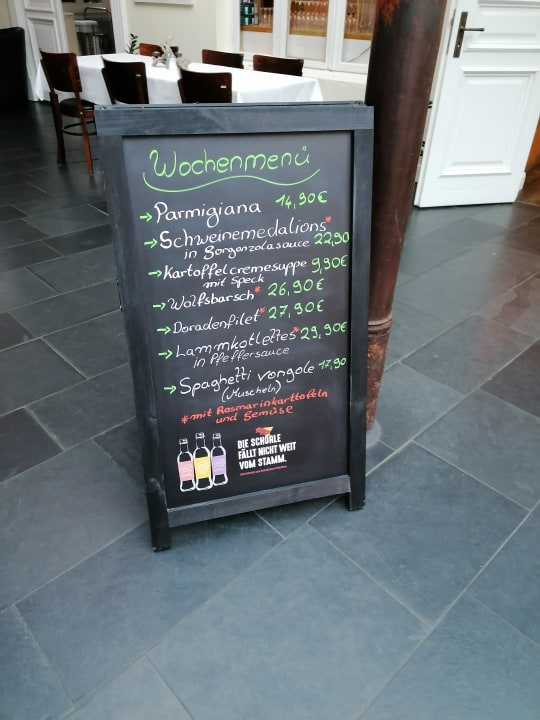 Wochenmenü
→ Parmigiana 14,90€
→ Schweinemedalions*
in Gorgonzolasauce 22,90
→ Kartoffelcremesuppe 9,90€
mit Speck
→ Wolfsbarsch* 26,90€
→ Doradenfilet* 27,90€
→ Lammkotlettes* 29,90€
in Pfeffersauce
→ Spaghetti vongole 17,90
(Muscheln)
*mit Rosmarinkarttofeln
und Gemüse
DIE SCHORLE
FÄLLT NICHT WEIT
VOM STAMM.